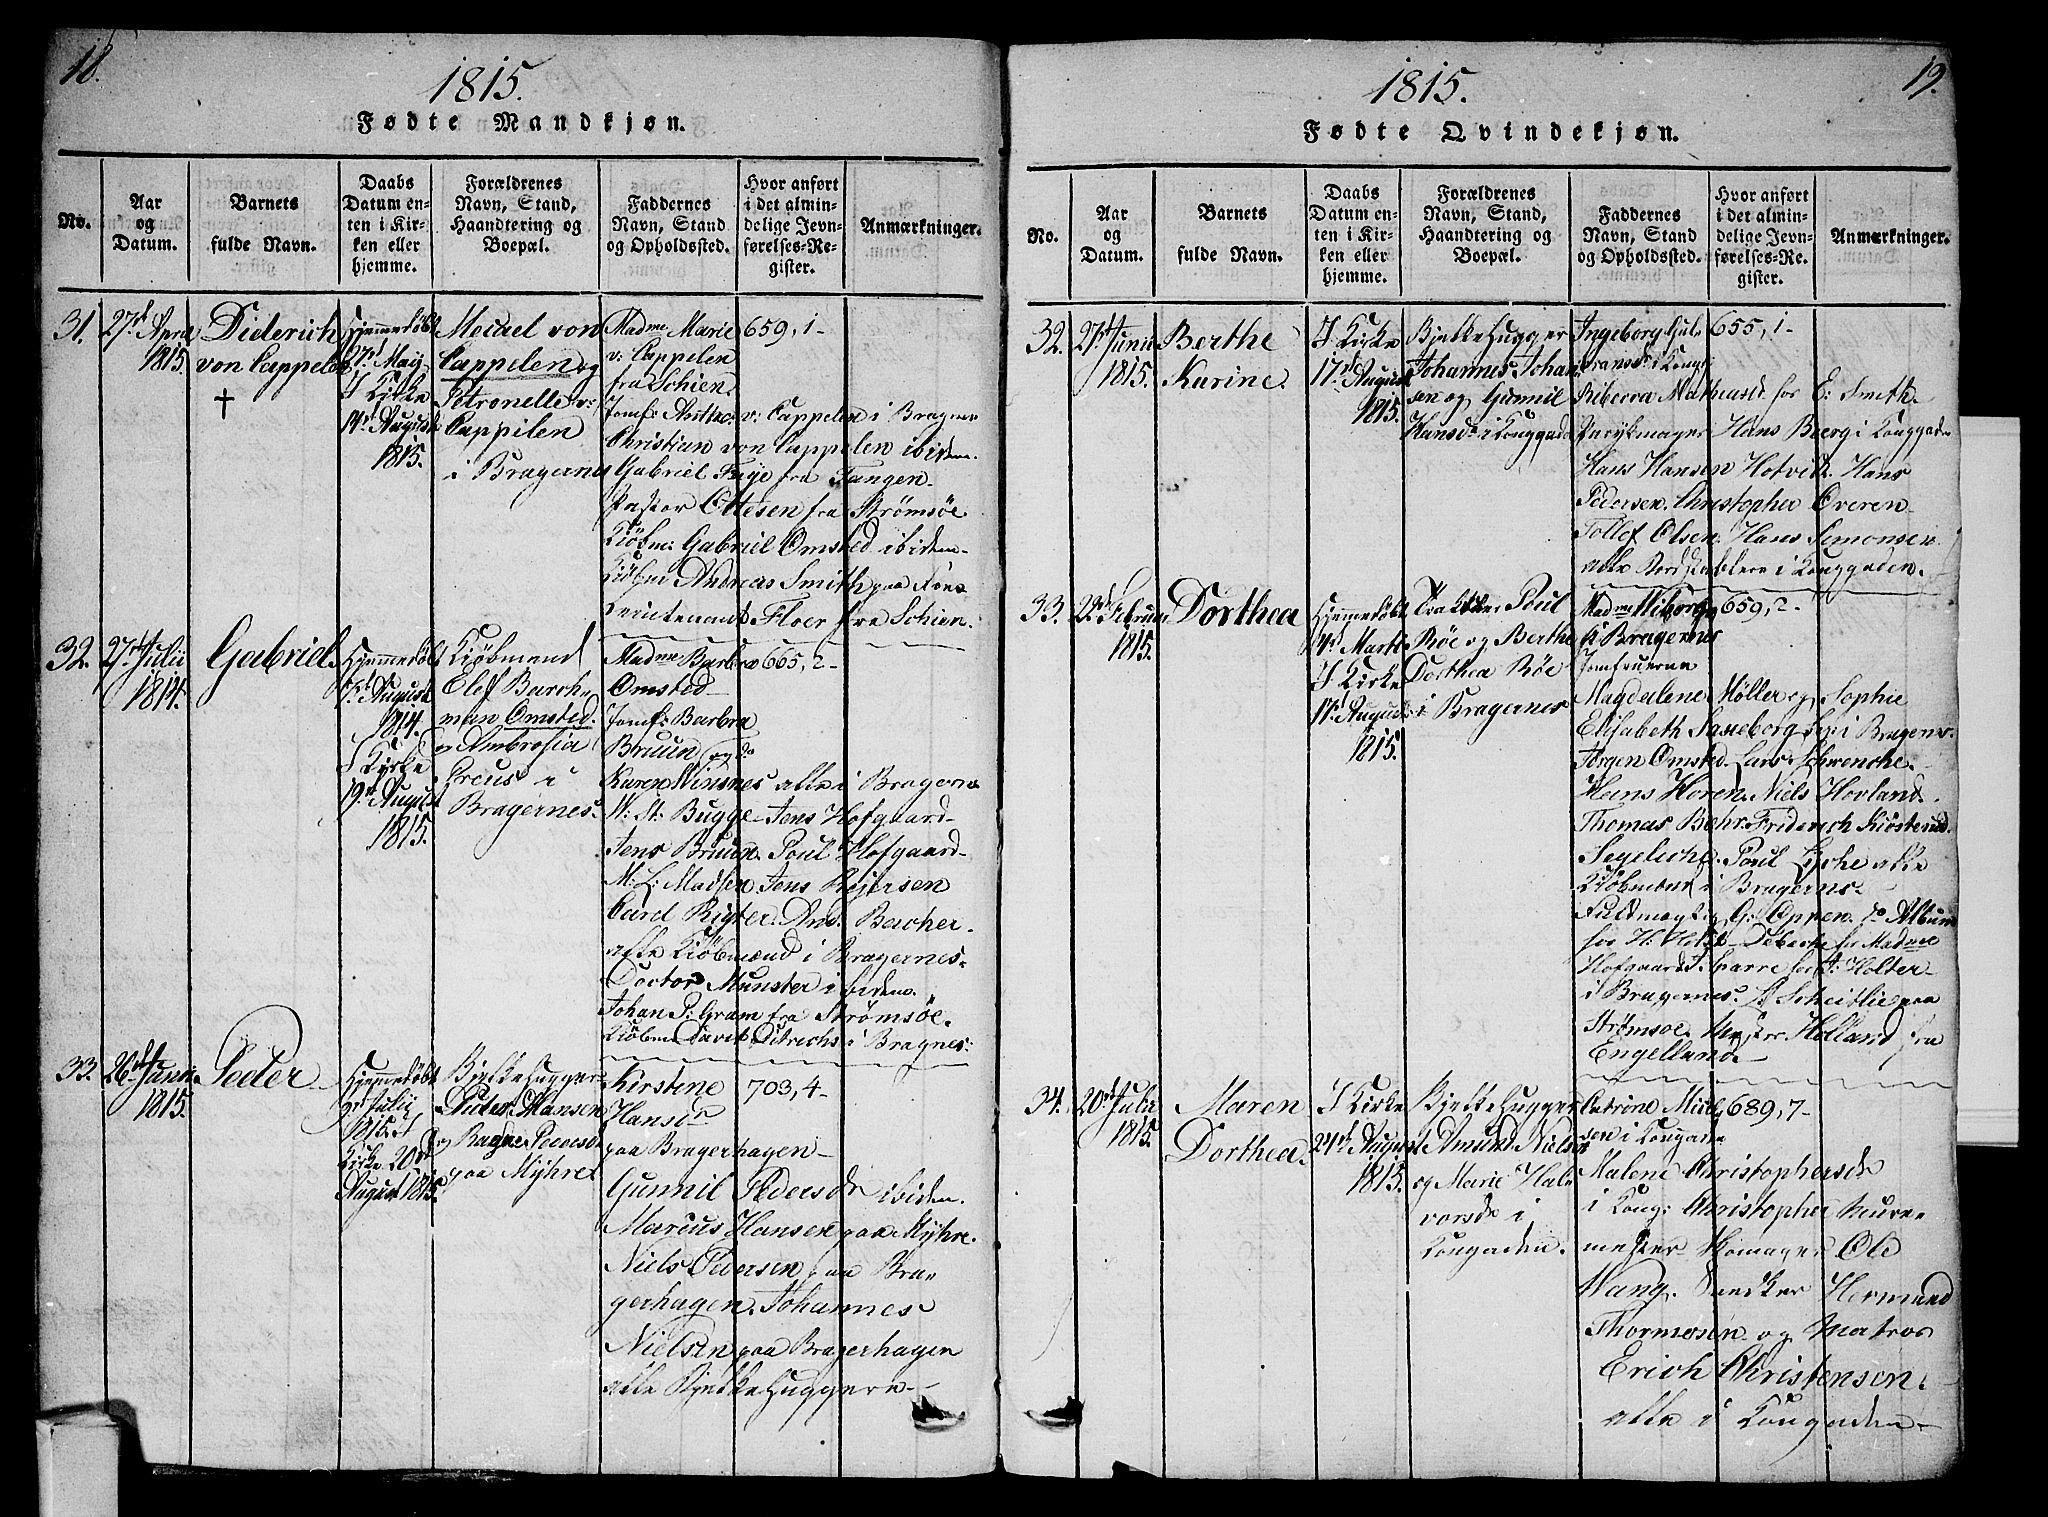 18.
1815.
Fødte Mandkjøn.
No.
Aar
og
Datum.
Barnets
fulde Navn.
Daabs
Datum en-
ten i Kir-
ken eller
hjemme.
Forældrenes
Navn, Stand,
Haandtering og
Boepæl.
Faddernes
Navn, Stand
og Opholdssted.
Hvor anført
i det almin-
delige Jevn-
førelses-Re-
gister.
Anmærkninger.
31.
27de April
1815.
Diderich
von Cappelen
†
Hjemmedøbt
27de Maij
I Kirke
14de August
1815.
Micael von
Cappelen og
Petronelle v:
Cappelen
i Bragernes
Madme Marie
v: Cappelen
fra Schien.
Jomf: v: Cappelen i Bragnes
Christian von Cappelen ibidem.
Gabriel Feije fra Tangen.
Pastor Ottesen fra Strømsøe
Kiøbm: Gabriel Omsted ibidem.
Kiøbm Andreas Smith paa
Leutenant Floer fra Schien.
659, 1-
32.
27de Julii
1814.
Gabriel.
Hjemmedøbt
August
1814.
I Kirke
19de August
1815.
Kiøbmand
Elef Barch-
man Omsted.
og Ambrosia
Creus i
Bragernes.
Madme Barbra
Omsted
Jomf: Barbra
Bruun og do
Karen Winsnes alle i Bragern:
W. St. Bugge. Jens Hofgaard
Jens Bruun. Poul Hofgaard
M: L: Madsen. Jens Reiersen
Carl Rigter. And. Beccher.
alle Kiøbmænd i Bragernes.
Doctor Munster ibidem.
Johan P: Gram fra Strømsøe.
Kiøbm David Ditrichs i Bragnes:
665, 2-
33.
26de Junii
1815.
Peder
Hjemmedøbt
2de Julij
1815. I
Kirke 20de
August 1815.
Bjelkehugger
Peder Hansen
og Ragne Pedersd
paa Mijhre
Kirstine
Hansdr
paa Bragerhagen
Gunnil Pedersdr ibidem.
Marcus Hansen paa Mijhre.
Niels Pedersen paa Bra-
gerhagen. Johannes
Nielsen paa Bragerhagen
alle Bjelkehuggere
703, 4-
19.
1815.
Fødte Qvindekjøn.
No.
Aar
og
Datum.
Barnets
fulde Navn.
Daabs
Datum en-
ten i Kir-
ken eller
hjemme.
Forældrenes
Navn, Stand,
Haandtering og
Boepæl.
Faddernes
Navn, Stand
og Opholdssted.
Hvor anført
i det almin-
delige Jevn-
førelses-Re-
gister.
Anmærkninger.
32.
27de Junii
1815.
Berthe
Karine.
I Kirke
17de August
1815.
Bjelkehugger
Johannes Johan
sen og Gunnil
Hansdr i Konggade
Ingeborg
i Kong:
Riberra Mathiasd for E: Smith
Parykmager Hans Beerg i Konggaden
Hans Hansen Hotvidt. Hans
Pedersen. Christopher Overen
Tollef Olsen. Hans Simonsen
alle Bordstablere i Konggaden.
655, 1-
33.
22de Februar
1815.
Dorthea
Hjemmedøbt
4de Marti
I Kirke
17de August
1815.
Poul
Røe og Berthe
Dorthea Røe
i Bragernes
Madme Wiborg
i Bragernes
Jomfruerne
Magdalene Møller og Sophie
Elisabeth i Bragern.
Jørgen Omsted. Lars Schwencke.
Hans Horen. Niels Hovland.
Thomas Behr. Friderich
Segelcke. Poul Lyche alle
Kiøbmænd i Bragerns.
Fuldmægtig G: Oppen.
for H: Holst for Madme
Hofgaard. for J: Holter
i Bragernes. Scheitlie paa
Strømsøe. Holland fra
Engelland.
659, 2-
34.
20de Julii
1815.
Maren
Dorthea.
I Kirke
24de August
1815.
Bjelkehugger
Amund Nielsen
og Marie Hal-
vorsdr i
Kongaden.
Catrine
sen i Kongade
Malene Christophersdr
i Kong: Christopher Mure
mester. Skomager Ole
Wang. Snedker Hermund
Thormosen og Matros
Erich Christensen.
alle i Kongaden
689, 7-